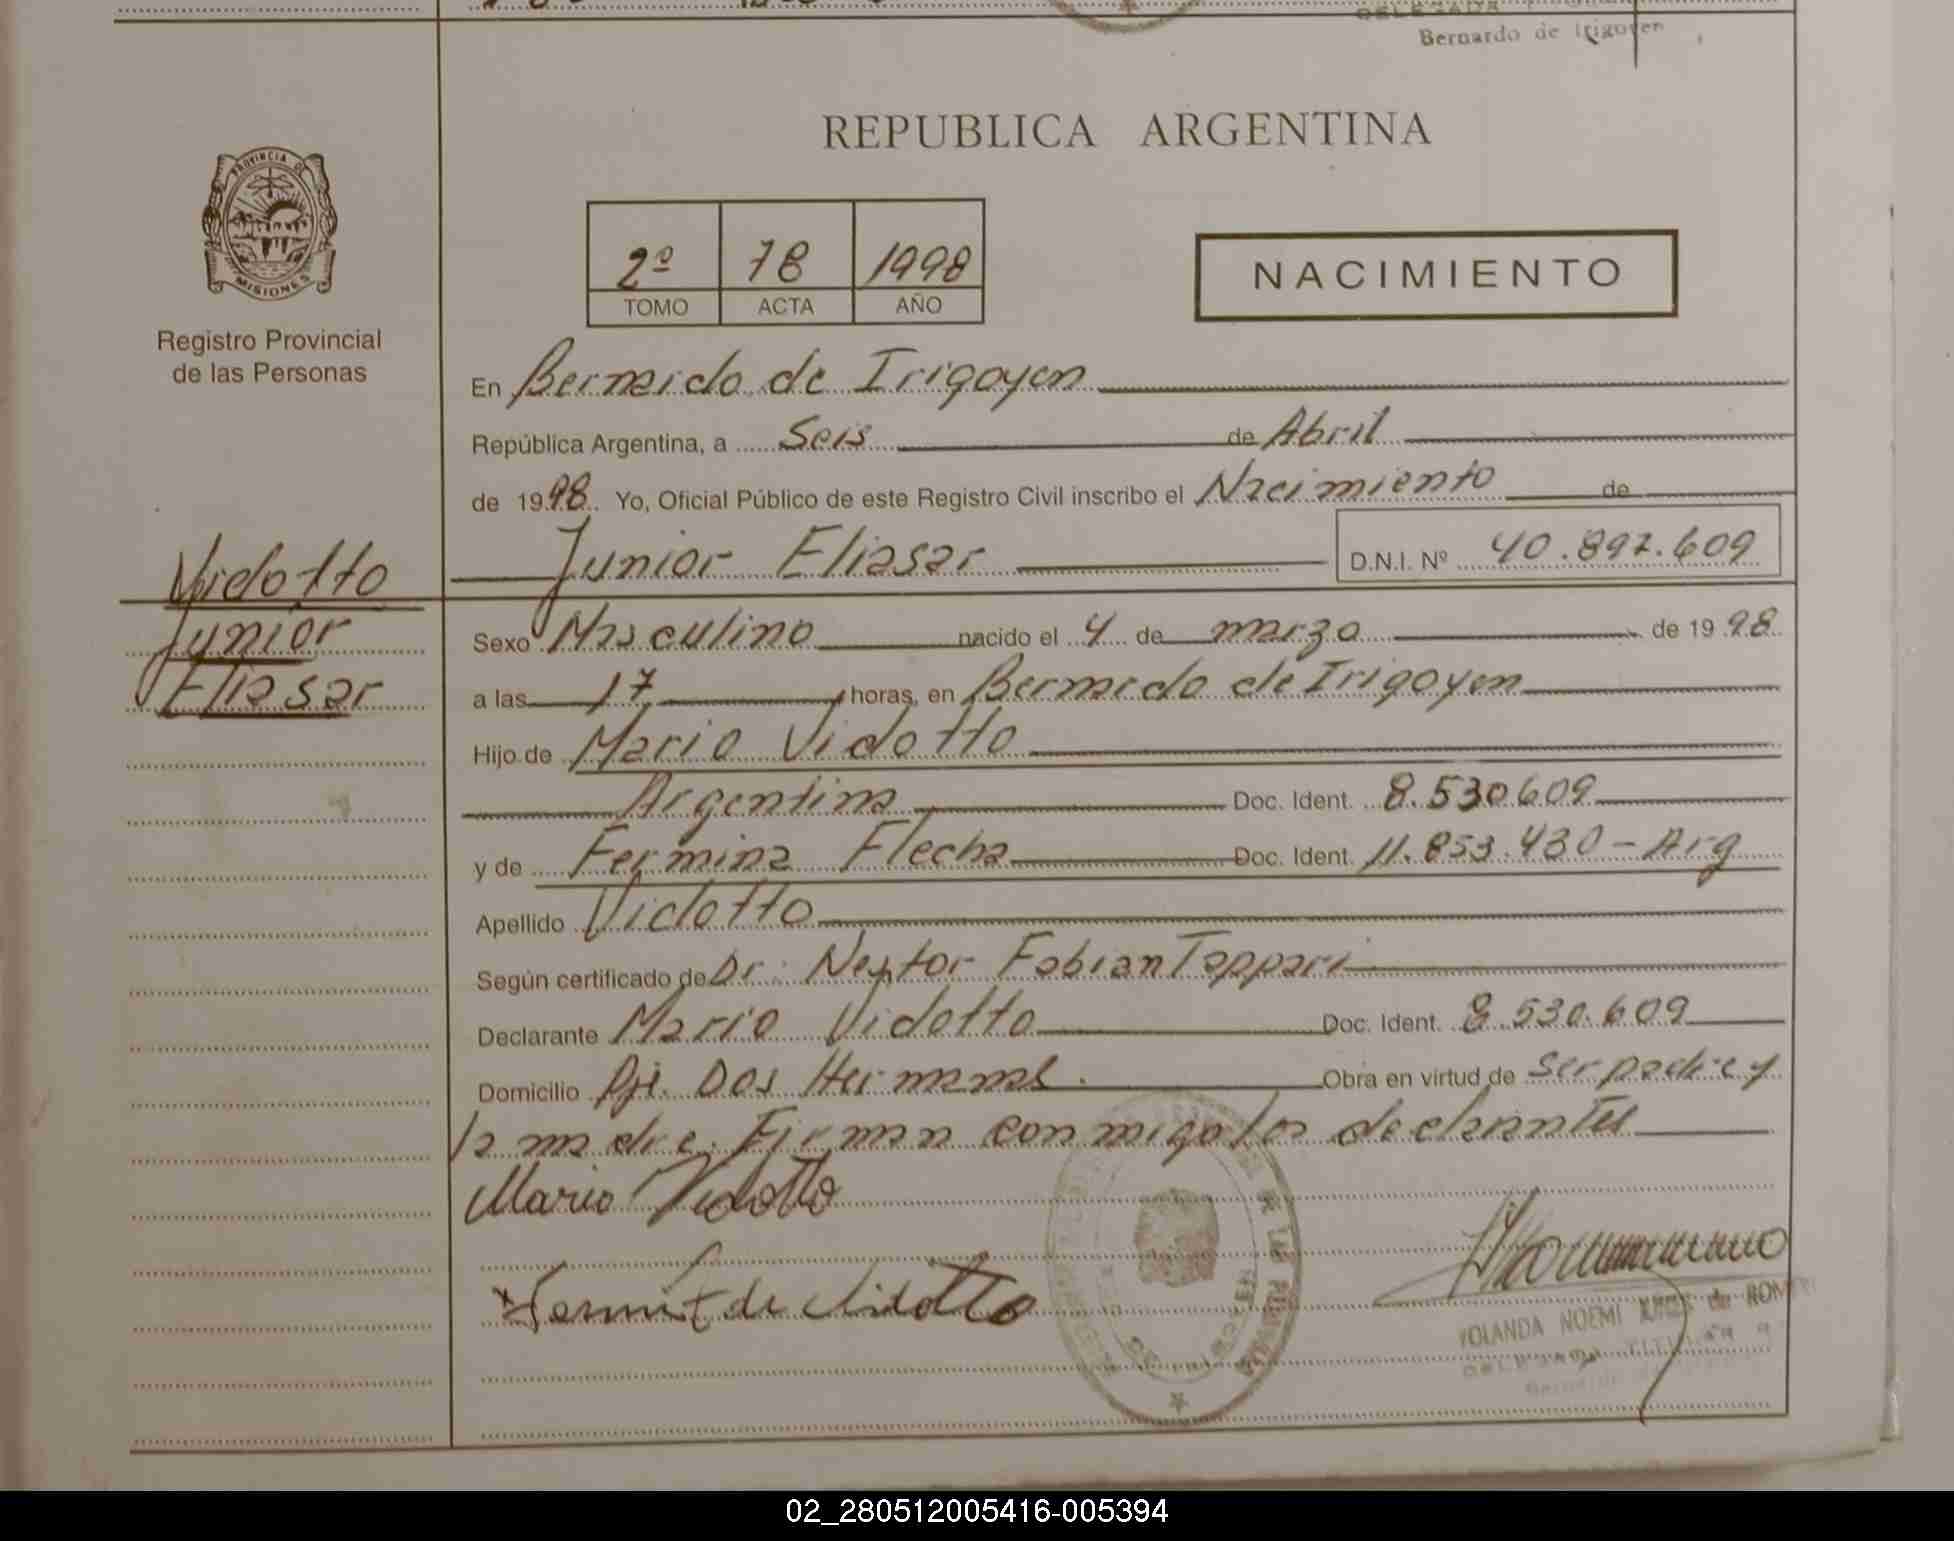 Bernardo de Irigoyen
REPUBLICA ARGENTINA
PROVINCIA DE
MISIONES
Registro Provincial
de las Personas
2º 78 1998
TOMO ACTA AÑO
NACIMIENTO
En Bernardo de Irigoyen
República Argentina, a Seis de Abril
de 1998 Yo, Oficial Público de este Registro Civil inscribo el Nacimiento de
Junior Eliasar D.N.I. Nº 40.897.609
Vidotto
Junior
Eliasar
Sexo Masculino nacido el 4 de marzo de 1998
a las 17 horas, en Bernardo de Irigoyen
Hijo de Mario Vidotto
Argentina Doc. Ident. 8.530.609
y de Fermina Flecha Doc. Ident. 11.853.430 - Arg
Apellido Vidotto
Según certificado de Dr. Nestor Fabian Tappari
Declarante Mario Vidotto Doc. Ident. 8.530.609
Domicilio Pje. Dos Hermanas. Obra en virtud de ser padre y
la madre. Firman conmigo los declarantes
Mario Vidotto
de Vidotto
YOLANDA NOEMI de
02_280512005416-005394